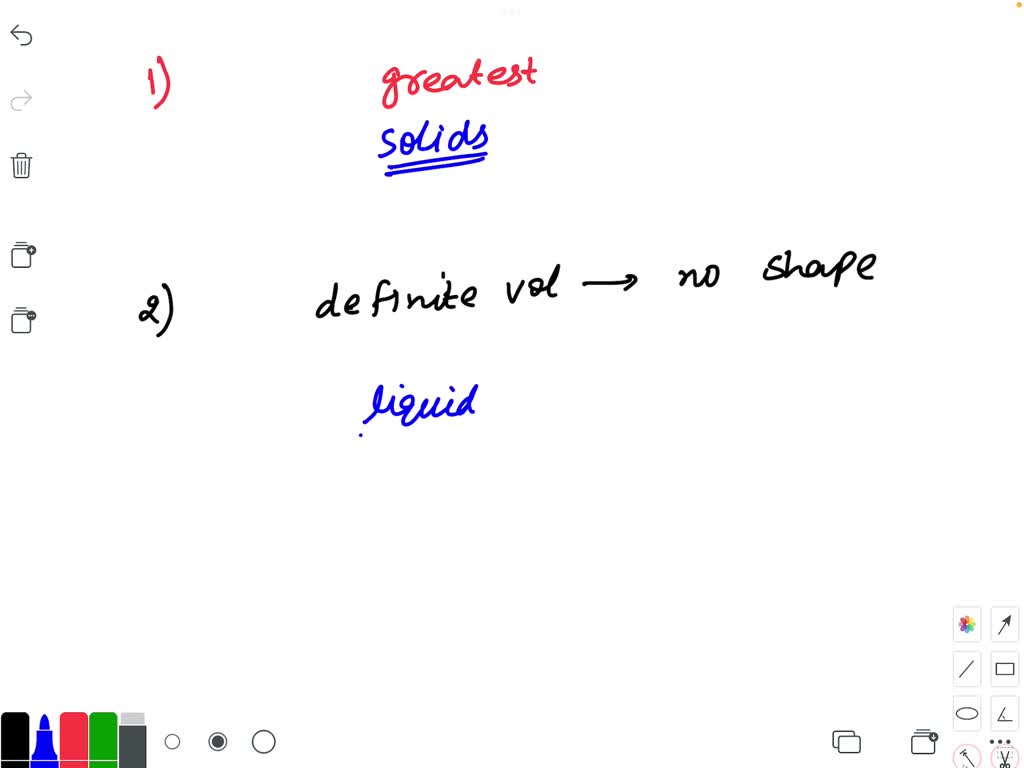 1) greatest
solids
2) definite vol → no shape
liquid